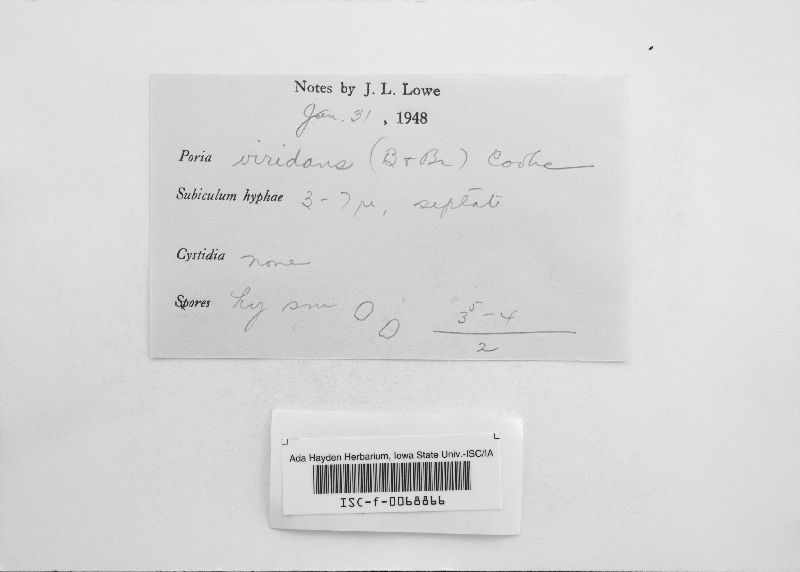 Notes by J. L. Lowe
Jan. 31, 1948
Poria viridans (B & Br) Cooke
Subiculum hyphae 3-7 µ, septate
Cystidia none
Spores hy sm 3⁵-4
2
Ada Hayden Herbarium, Iowa State Univ.-ISC/IA
ISC-f-0068866